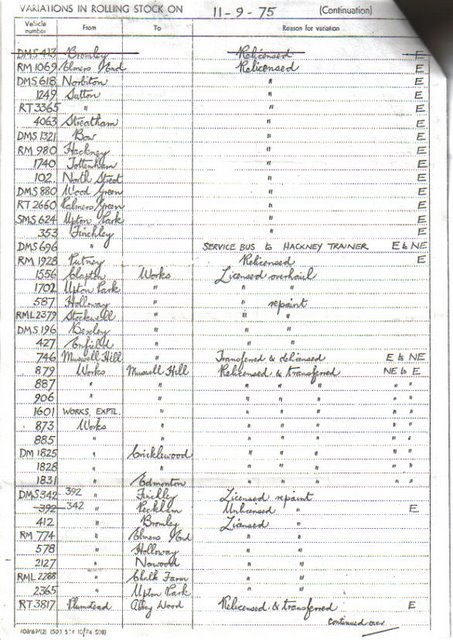 VARIATIONS IN ROLLING STOCK ON 11-9-75 (Continuation)
Vehicle number From To Reason for variation
DMS 413 Bromley Relicensed E
RM 1069 Elmers End Relicensed E
DMS 618 Norbiton " E
1249 Sutton " E
RT 3365 " " E
4063 Streatham " E
DMS 1321 Bow " E
RM 980 Hackney " E
1740 Tottenham " E
102 North Street " E
DMS 880 Wood Green " E
RT 2660 Palmers Green " E
SMS 624 Upton Park " E
353 Finchley " E
DMS 696 " SERVICE BUS to HACKNEY TRAINER E to NE
RM 1928 Putney Relicensed E
1556 Clapton Works Licensed overhaul
1702 Upton Park " " "
587 Holloway " " repaint
RML 2379 Stockwell " " "
DMS 196 Bexley " " "
427 Enfield " " "
746 Muswell Hill " Transferred & delicensed E to NE
879 Works Muswell Hill Relicensed & transferred NE to E
887 " " " " " " "
906 " " " " " " "
1601 WORKS, EXPTL. " " " " " "
873 Works " " " " " "
885 " " " " " " "
DM 1825 " Cricklewood " " " " "
1828 " " " " " " "
1831 " Edmonton " " " " "
DMS 342 392 " Finchley Licensed repaint
392 342 " Peckham Unlicensed " E
412 " Bromley Licensed "
RM 774 " Elmers End " "
578 " Holloway " "
2127 " Norwood " "
RML 2288 " Chalk Farm " "
2365 " Upton Park " "
RT 3817 Plumstead Abbey Wood Relicensed & transferred E
continued over